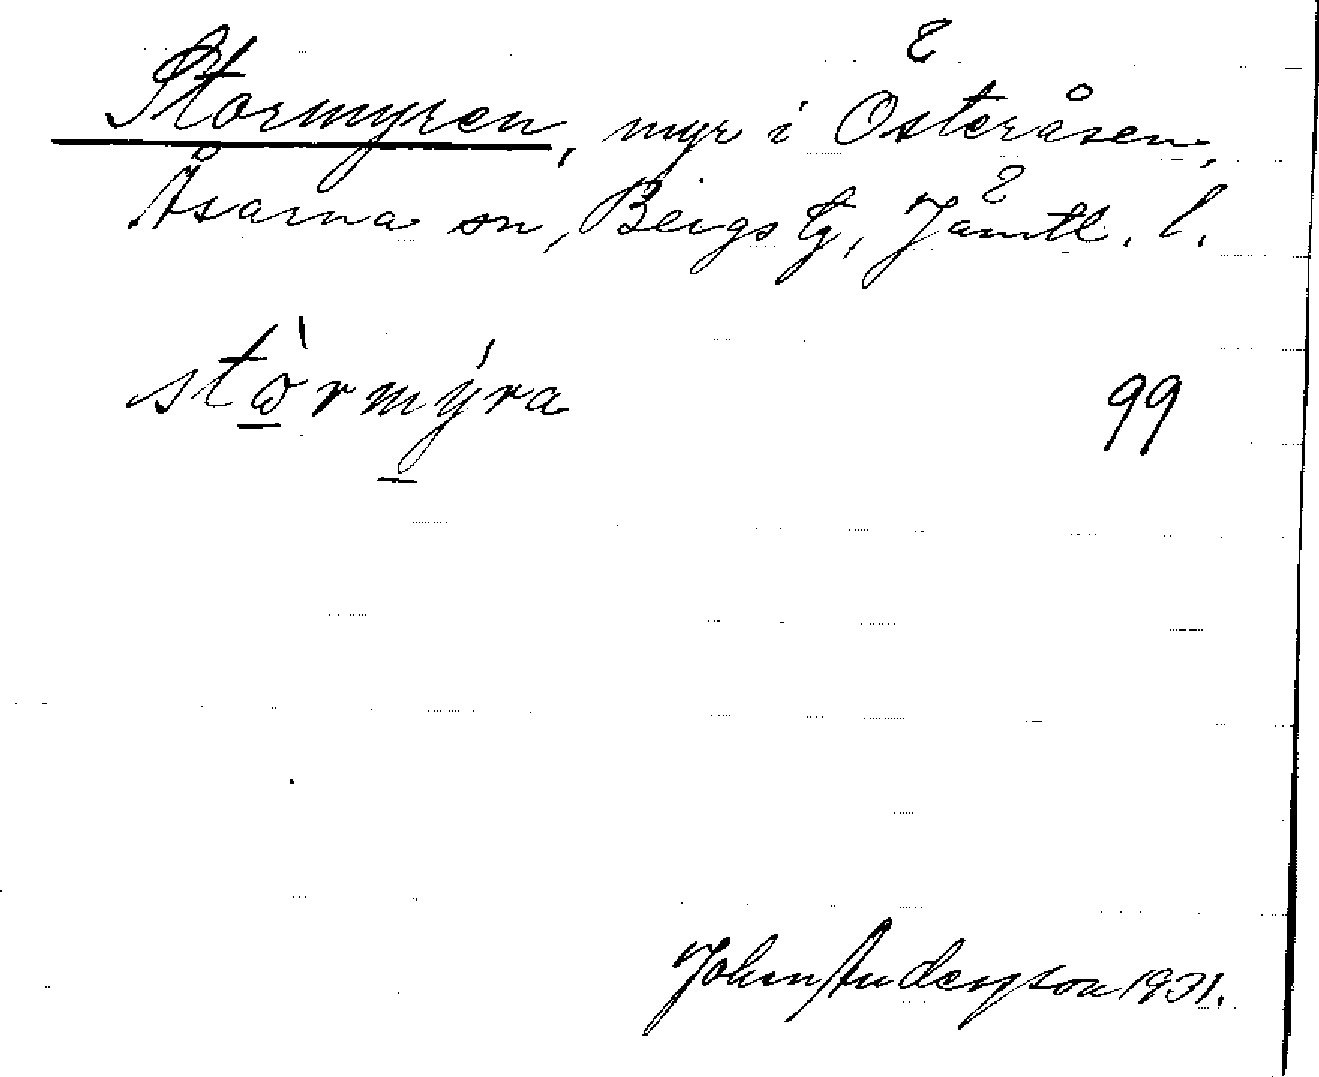 Stormyren, myr i Österåsen,
Åsarna sn, Bergs tg, Jämtl. l.
stòrmýra 99
John Anderson 1931.